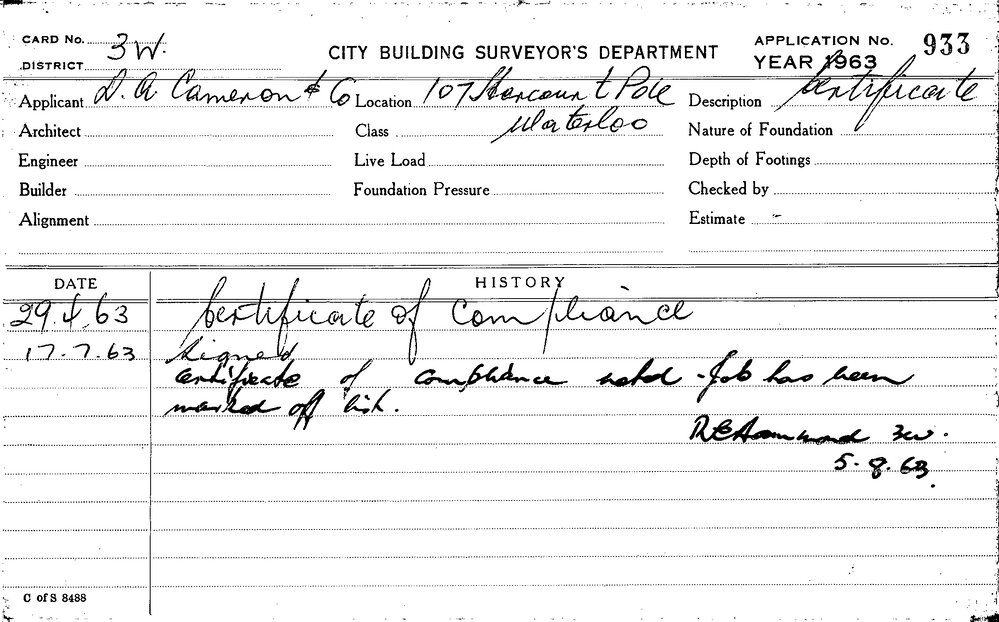 CARD No. 3W.
DISTRICT
CITY BUILDING SURVEYOR'S DEPARTMENT
APPLICATION No. 933
YEAR 1963
Applicant D. A Cameron & Co Location 107 Harcourt Pde Description Certificate
Architect Class Waterloo Nature of Foundation
Engineer Live Load Depth of Footings
Builder Foundation Pressure Checked by
Alignment Estimate -
DATE HISTORY
29.4.63 Certificate of Compliance
17.7.63 Signed
Certificate of compliance noted - Job has been
marked off list.
R E Hammond 3W.
5.8.63.
C of S 8488